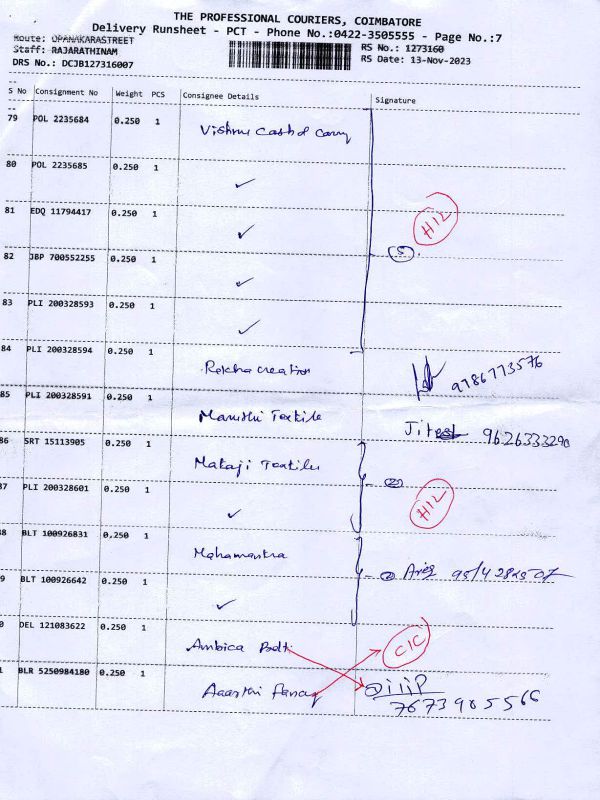 THE PROFESSIONAL COURIERS, COIMBATORE
Delivery Runsheet - PCT - Phone No.:0422-3505555 - Page No.:7
Route: OPANAKARASTREET
RS No.: 1273160
Staff: RAJARATHINAM
RS Date: 13-Nov-2023
DRS No.: DCJB127316007
S No Consignment No Weight PCS Consignee Details Signature
79 POL 2235684 0.250 1 Vishnu Cash & Carry
80 POL 2235685 0.250 1 ✓
81 EDQ 11794417 0.250 1 ✓ H12
82 JBP 700552255 0.250 1 ✓ 5
83 PLI 200328593 0.250 1 ✓
84 PLI 200328594 0.250 1 Rekha creation 9786773576
85 PLI 200328591 0.250 1 Maruthi Textile Jitesh 9626333290
86 SRT 15113905 0.250 1 Mataji Textiles 2
87 PLI 200328601 0.250 1 ✓ H12
8 BLT 100926831 0.250 1 Mahamantra
9 BLT 100926642 0.250 1 ✓ 2
0 DEL 121083622 0.250 1 Ambica C/C
1 BLR 5250984180 0.250 1 7673905566